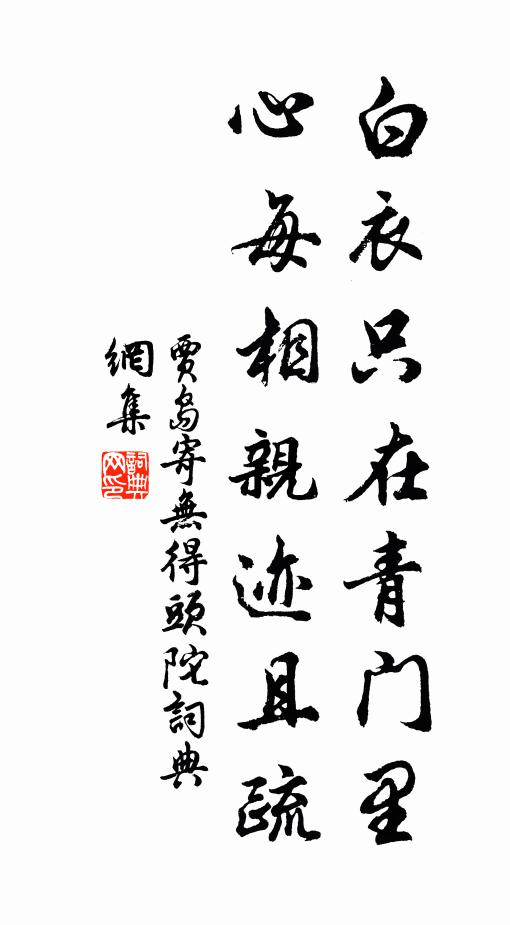 白衣只在青门里
心每相親迹且疏
賈島寄無得頭陀詞典
網集
詞典網印